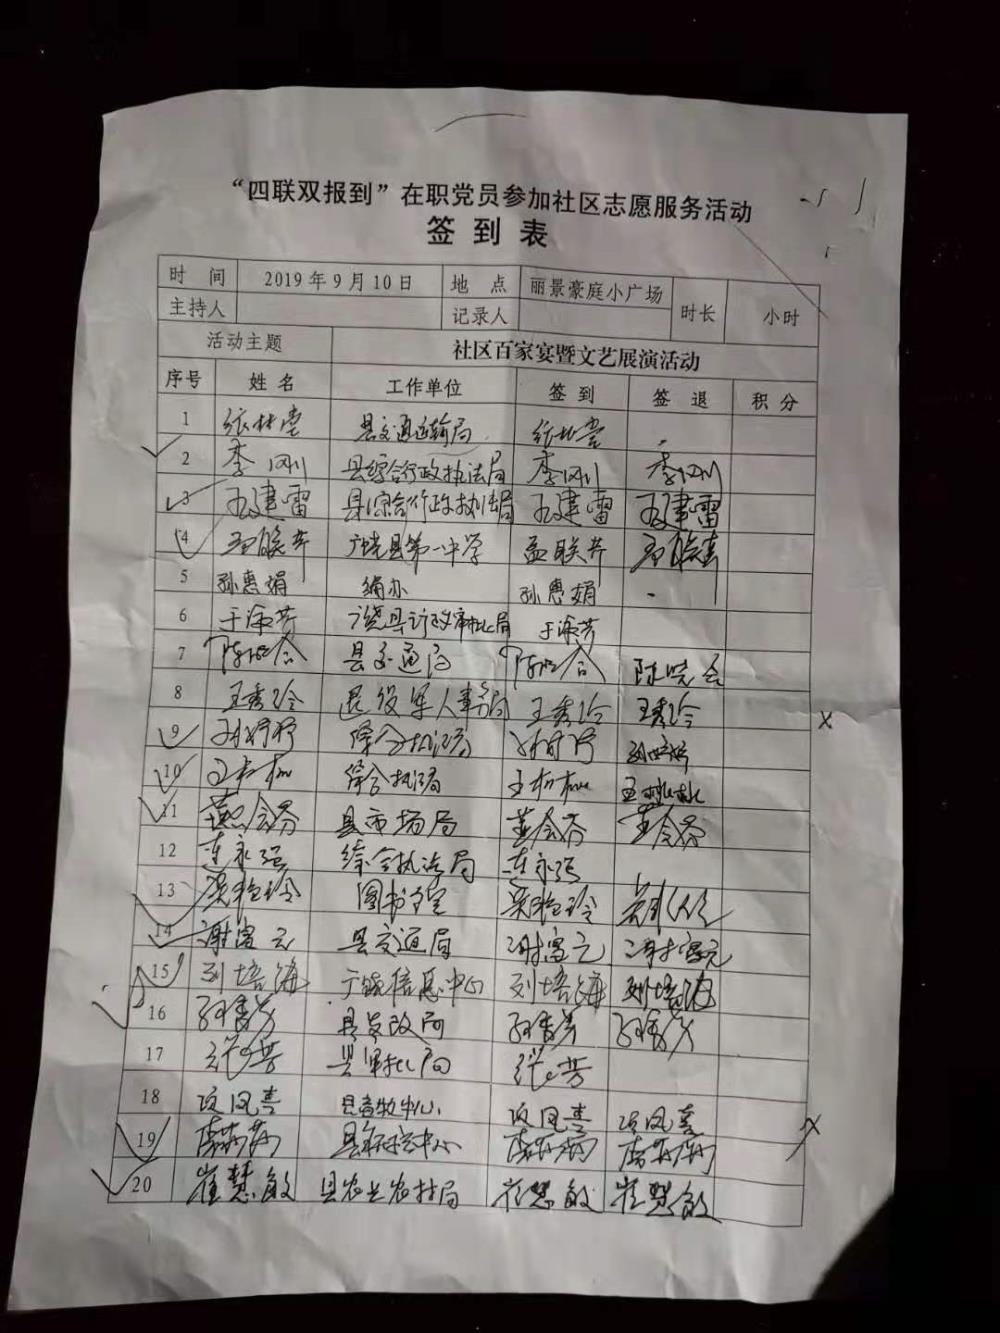 “四联双报到”在职党员参加社区志愿服务活动
签到表
时 间 2019年9月10日 地 点 丽景豪庭小广场 时长 小时
主持人 记录人
活动主题 社区百家宴暨文艺展演活动
序号 姓名 工作单位 签到 签退 积分
1 张林堂 县交通运输局 张林堂
2 李刚 县综合行政执法局 李刚 李刚
3 建雷 县综合行政执法局 建雷 建雷
4 孟联芹 广饶县第一中学 孟联芹
5 孙惠娟 编办 孙惠娟
6 于淑芳 广饶县行政审批局 于淑芳
7 陈晓合 县交通局 陈晓合 陈晓合
8 王秀玲 退役军人事务局 王秀玲 王秀玲
9 孙婷婷 综合执法局 孙婷婷 孙婷婷
10 综合执法局
11 董会芬 县市场局 董会芬 董会芬
12 永强 综合执法局 永强
13 玲 图书室 玲
14 谢富元 县交通局 谢富元 谢富元
15 刘培海 广饶信息中心 刘培海 刘培海
16 孙秀芳 县发改局 孙秀芳 孙秀芳
17 张芳 县审批局 张芳
18 凤喜 县畜牧中心 凤喜 凤喜
19 县中心
20 崔慧敏 县农业农村局 崔慧敏 崔慧敏